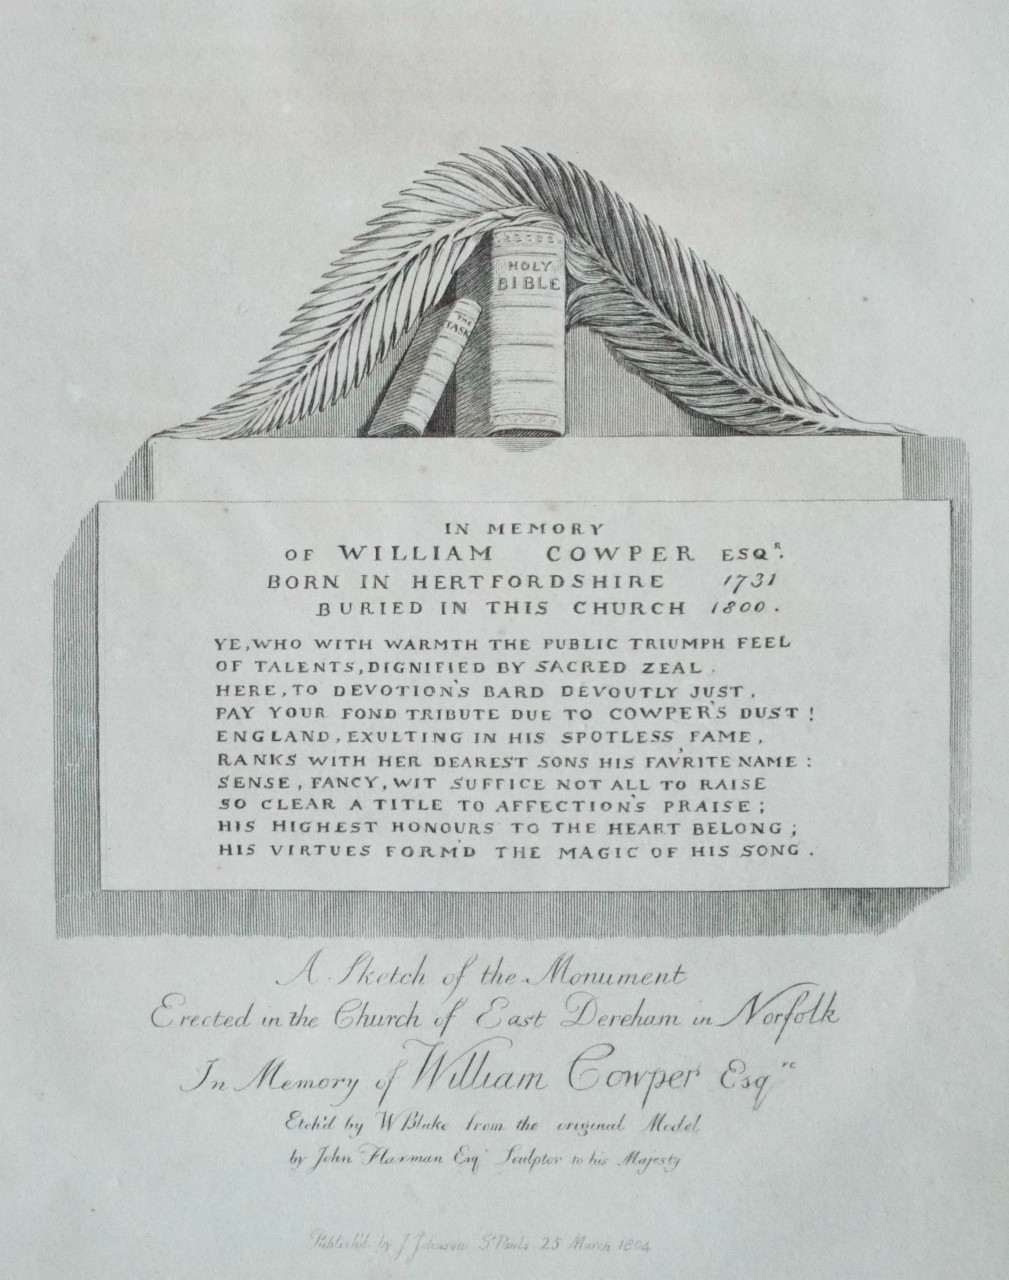 HOLY
BIBLE
THE
TASK
IN MEMORY
OF WILLIAM COWPER ESQR.
BORN IN HERTFORDSHIRE 1731
BURIED IN THIS CHURCH 1800.
YE, WHO WITH WARMTH THE PUBLIC TRIUMPH FEEL
OF TALENTS, DIGNIFIED BY SACRED ZEAL.
HERE, TO DEVOTION'S BARD DEVOUTLY JUST,
PAY YOUR FOND TRIBUTE DUE TO COWPER'S DUST!
ENGLAND, EXULTING IN HIS SPOTLESS FAME,
RANKS WITH HER DEAREST SONS HIS FAV'RITE NAME:
SENSE, FANCY, WIT SUFFICE NOT ALL TO RAISE
SO CLEAR A TITLE TO AFFECTION'S PRAISE;
HIS HIGHEST HONOURS TO THE HEART BELONG;
HIS VIRTUES FORM'D THE MAGIC OF HIS SONG.
A Sketch of the Monument
Erected in the Church of East Dereham in Norfolk
In Memory of William Cowper Esqre
Etch'd by W Blake from the original Model
by John Flaxman Esqr Sculptor to his Majesty
Publish'd by J Johnson St Pauls 25 March 1804